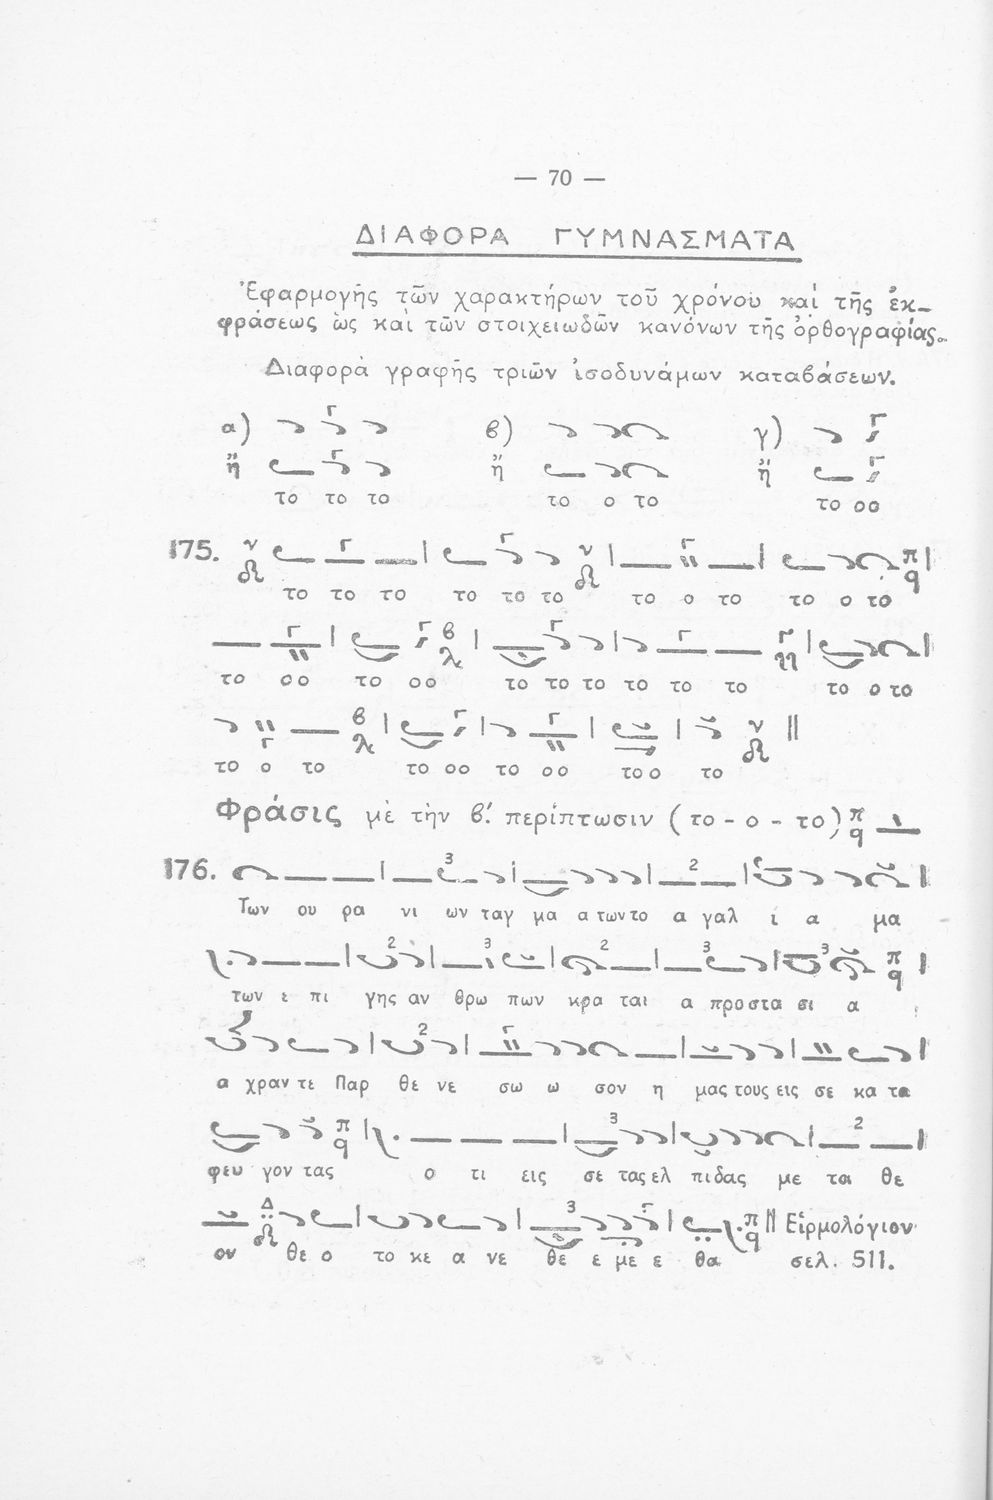 — 70 —
ΔΙΑΦΟΡΑ ΓΥΜΝΑΣΜΑΤΑ
Ἐφαρμογῆς τῶν χαρακτήρων τοῦ χρόνου καὶ τῆς ἐκ–
φράσεως ὡς καὶ τῶν στοιχειωδῶν κανόνων τῆς ὀρθογραφίας.
Διαφορὰ γραφῆς τριῶν ἰσοδυνάμων καταβάσεων.
α) β) γ)
ἢ ἢ ἢ
το το το το ο το το οο
175.
το το το το το το το ο το το ο το
το οο το οο το το το το το το το ο το
το ο το το οο το οο το ο το
Φράσις μὲ τὴν β΄. περίπτωσιν (το - ο - το)
176.
Των ου ρα νι ων ταγ μα α των το α γαλ ι α μα
των ε πι γης αν θρω πων κρα ται α προστα σι α
α χραν τε Παρ θε νε σω ω σον η μας τους εις σε κα τα
φευ γον τας ο τι εις σε τας ελ πιδας με τα θε
Εἱρμολόγιον
ον θε ο το κε α νε θε ε με ε θα σελ. 511.